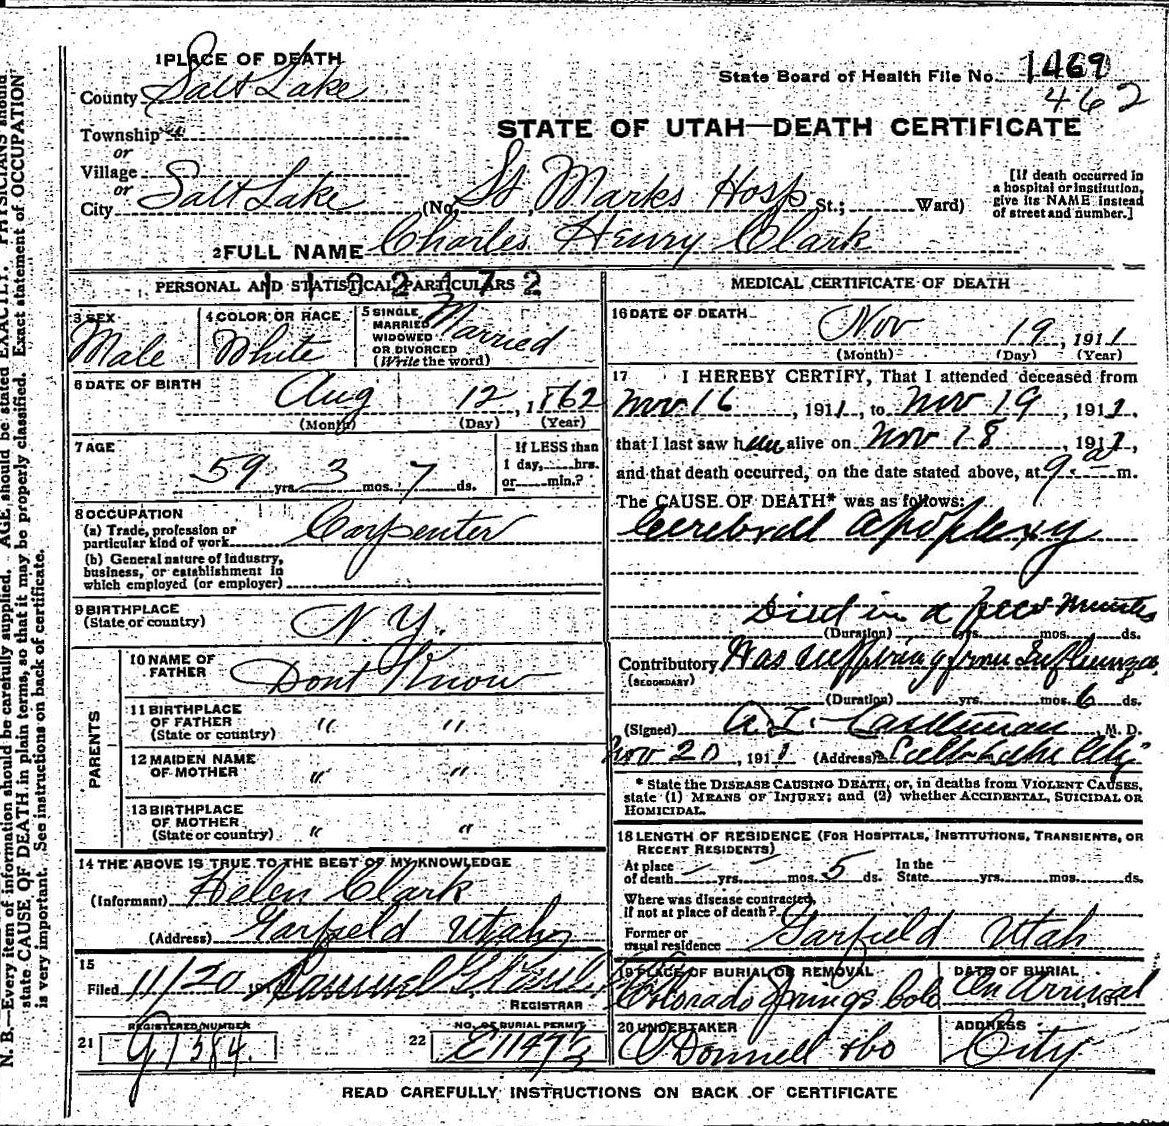 1 PLACE OF DEATH
County Salt Lake
Township
or
Village
or
City Salt Lake (No. St Marks Hosp St.; Ward)
State Board of Health File No. 1469
462
STATE OF UTAH—DEATH CERTIFICATE
[If death occurred in a hospital or institution, give its NAME instead of street and number.]
2 FULL NAME Charles Henry Clark
PERSONAL AND STATISTICAL PARTICULARS
3 SEX
Male
4 COLOR OR RACE
White
5 SINGLE
MARRIED
WIDOWED
OR DIVORCED
(Write the word)
Married
6 DATE OF BIRTH
Aug 12, 1862
(Month) (Day) (Year)
7 AGE
59 yrs. 3 mos. 7 ds.
If LESS than
1 day, hrs.
or min.?
8 OCCUPATION
(a) Trade, profession or
particular kind of work Carpenter
(b) General nature of industry,
business, or establishment in
which employed (or employer)
9 BIRTHPLACE
(State or country) N. Y.
PARENTS
10 NAME OF
FATHER Dont Know
11 BIRTHPLACE
OF FATHER
(State or country) " "
12 MAIDEN NAME
OF MOTHER " "
13 BIRTHPLACE
OF MOTHER
(State or country) " "
14 THE ABOVE IS TRUE TO THE BEST OF MY KNOWLEDGE
(Informant) Helen Clark
(Address) Garfield Utah
15
Filed 11/20 19 Samuel G.
REGISTRAR
21 REGISTERED NUMBER
G1384.
22 NO. OF BURIAL PERMIT
MEDICAL CERTIFICATE OF DEATH
16 DATE OF DEATH
Nov 19, 1911
(Month) (Day) (Year)
17 I HEREBY CERTIFY, That I attended deceased from
Nov 16, 1911, to Nov 19, 1911.
that I last saw him alive on Nov 18, 1911,
and that death occurred, on the date stated above, at 9. a m.
The CAUSE OF DEATH* was as follows:
Cerebral apoplexy
Died in a few minutes
(Duration) yrs. mos. ds.
Contributory Was suffering from Influenza
(SECONDARY)
(Duration) yrs. mos. 6 ds.
(Signed) A. L. Castleman M. D.
Nov 20, 1911 (Address) Salt Lake City
* State the DISEASE CAUSING DEATH, or, in deaths from VIOLENT CAUSES,
state (1) MEANS OF INJURY; and (2) whether ACCIDENTAL, SUICIDAL OR
HOMICIDAL.
18 LENGTH OF RESIDENCE (FOR HOSPITALS, INSTITUTIONS, TRANSIENTS, OR
RECENT RESIDENTS)
At place
of death yrs. mos. 5 ds. In the
State yrs. mos. ds.
Where was disease contracted,
if not at place of death?
Former or
usual residence Garfield Utah
19 PLACE OF BURIAL OR REMOVAL
Colorado Springs Colo
DATE OF BURIAL
On Arrival
20 UNDERTAKER
O'Donnell & Co
ADDRESS
City
READ CAREFULLY INSTRUCTIONS ON BACK OF CERTIFICATE
N. B.—Every item of information should be carefully supplied. AGE should be stated EXACTLY. PHYSICIANS should
state CAUSE OF DEATH in plain terms, so that it may be properly classified. Exact statement of OCCUPATION
is very important. See instructions on back of certificate.